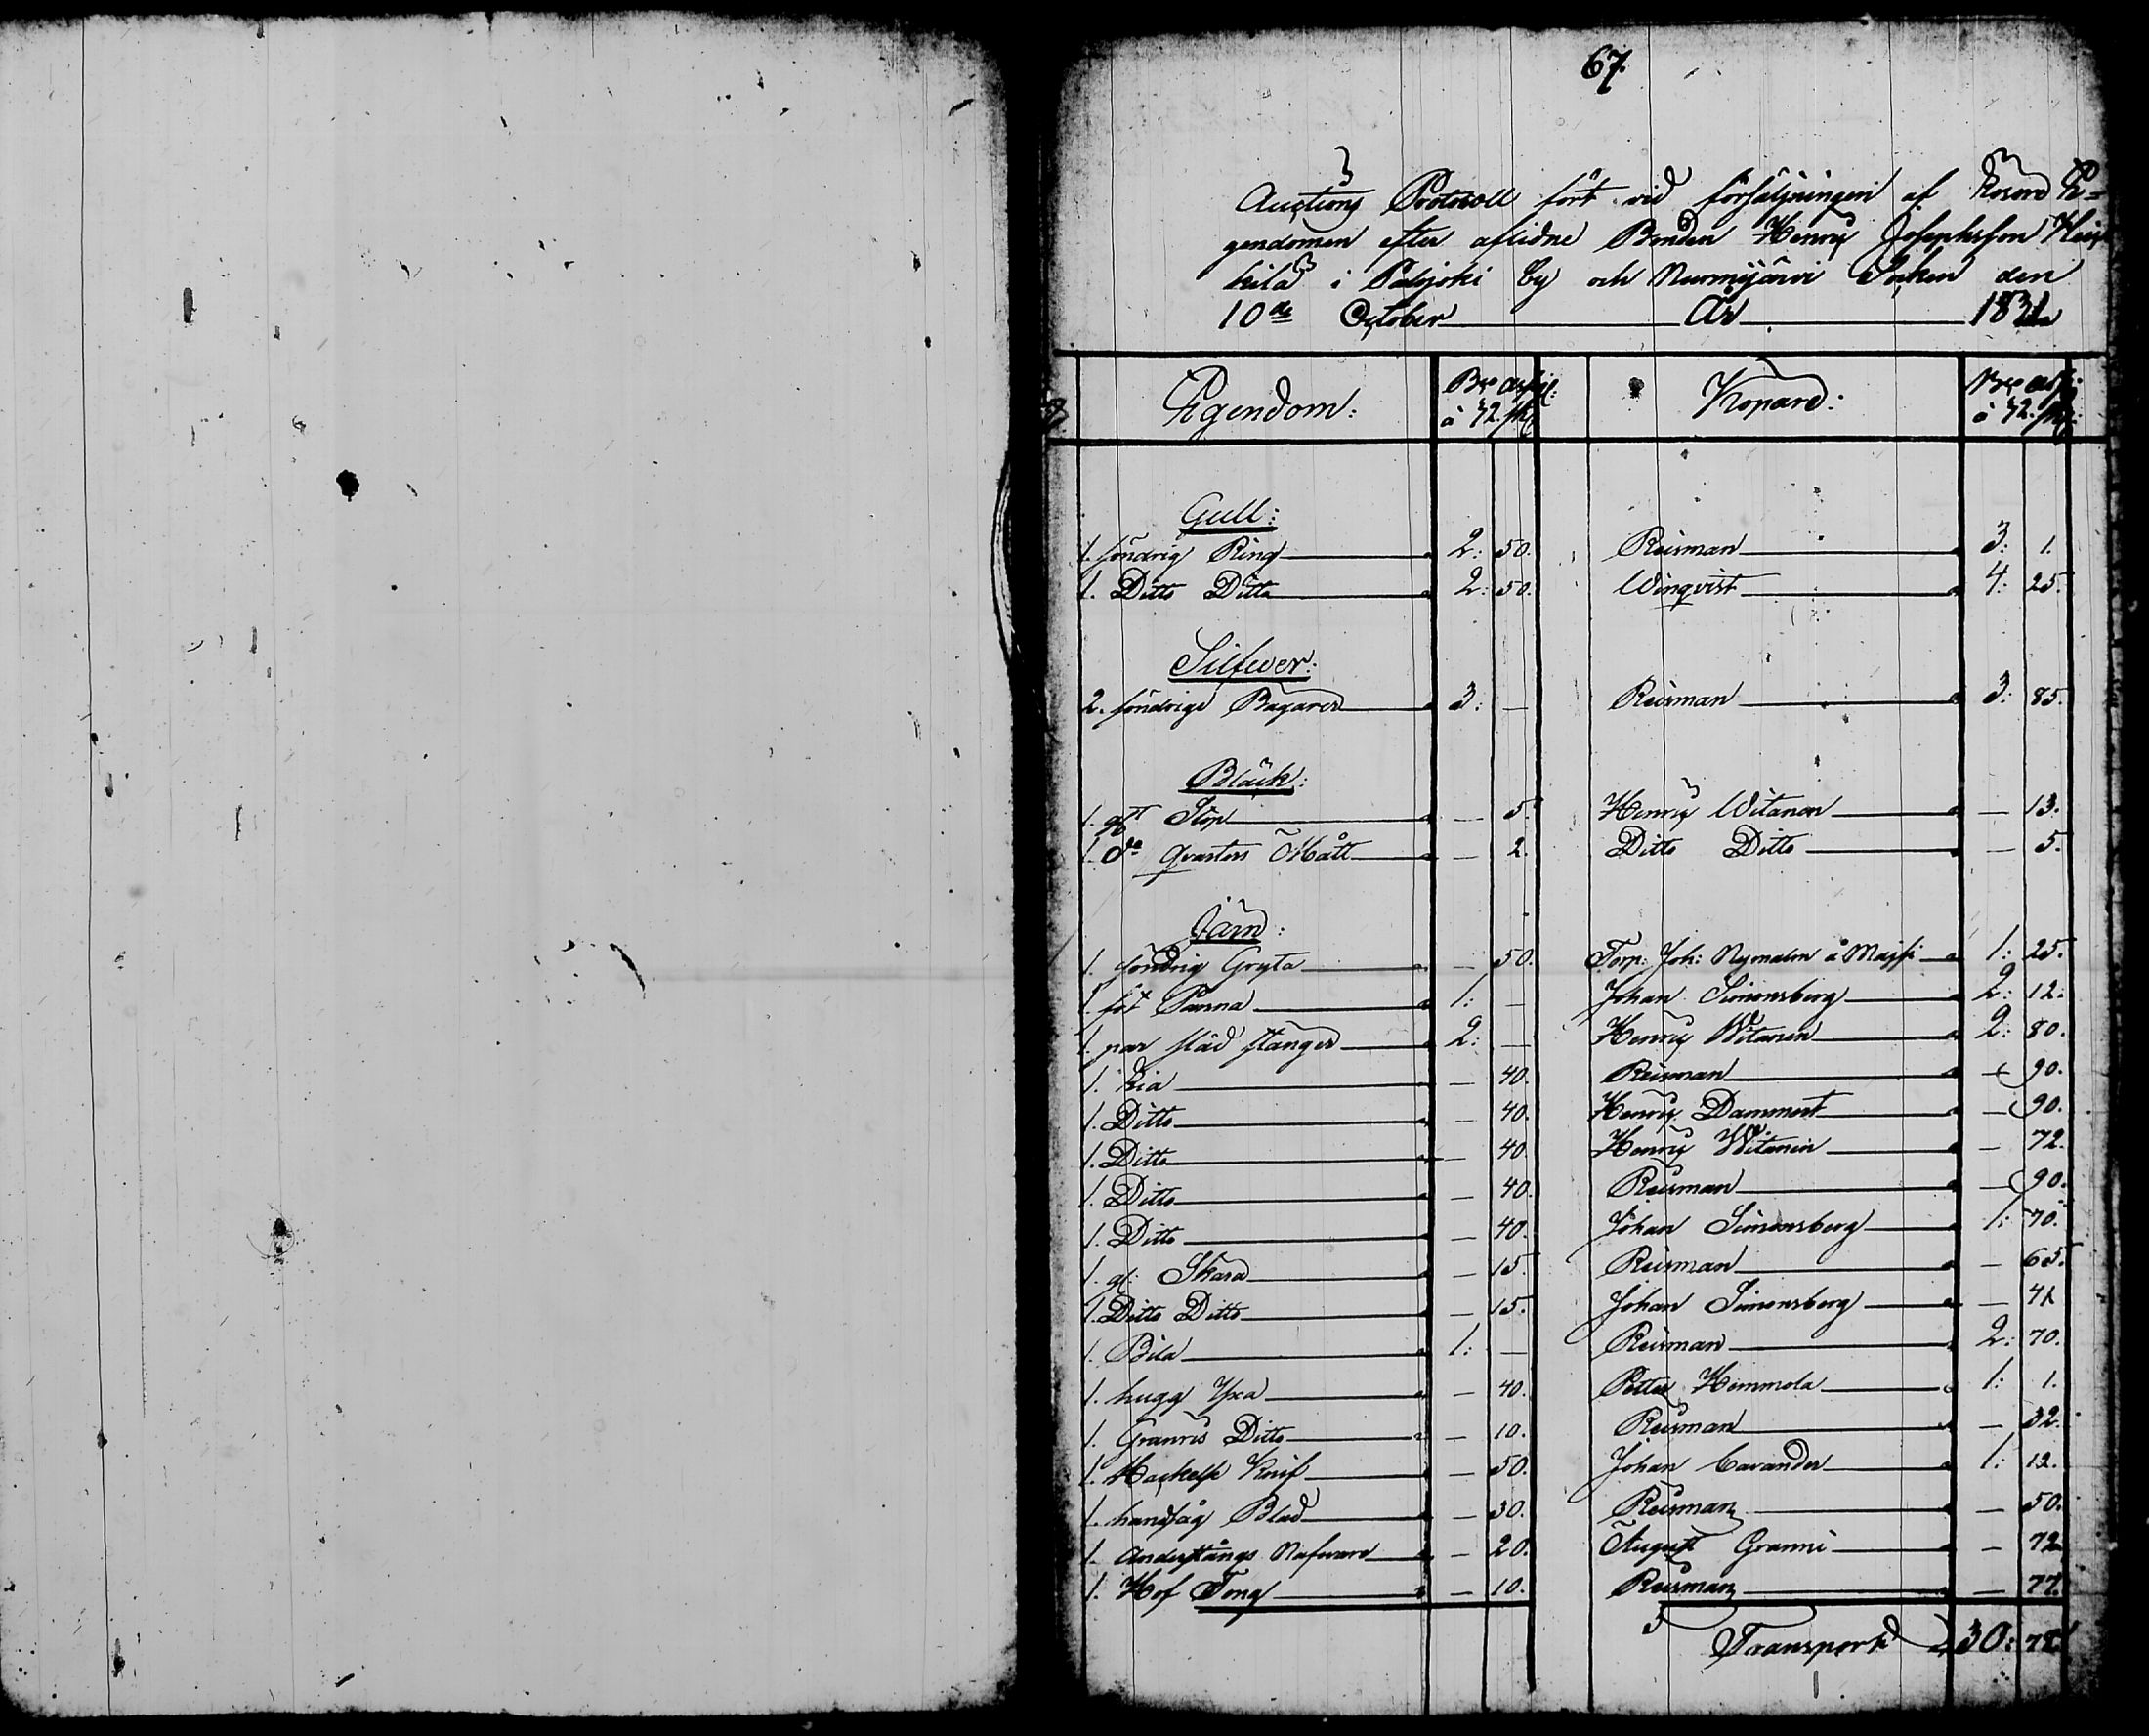 67.
Auctions Protocoll fört vid försäljningen af Lösore E-
gendomen efter aflidne Bonden Henric Josephsson Heik
kilä i Palojoki by och Nurmijärvi Socken den
10de October År 1831
Egendom: Bco Assig: à 72. sk Köpare: Bco Ass: à 72. sk
Gull:
1. söndrig Ring 2: 50. Reisman 3: 1.
1. Ditto Ditto 2: 50. Winqvist 4: 25.
Silfwer:
2. söndrige Bägare 3: — Reisman 3: 85.
Bläck:
1. glt Stop — 5. Henric Witanen — 13.
1. do qvarters Mått — 2. Ditto Ditto — 5.
Järn:
1. söndrig Gryta — 50. Torp: Joh: Nymalm à 1: 25.
1. fot Panna 1: — Johan Simonsberg 2: 12.
1. par släd stänger 2: — Henric Witanen 2: 80.
1. Lia — 40. Reisman — 90.
1. Ditto — 40. Henric Dammert — 90.
1. Ditto — 40. Henric Witanen — 72.
1. Ditto — 40. Reisman — 90.
1. Ditto — 40. Johan Simonsberg 1: 70.
1. gl: Skära — 15. Reisman — 65.
1. Ditto Ditto — 15. Johan Simonsberg — 41
1. Bila 1: — Reisman 2: 70.
1. hugg Yxa — 40. Petter Himmola 1: 1.
1. Granris Ditto — 10. Reisman — 32.
1. Hackelse Knif — 50. Johan Cavander 1: 12.
1. handsåg Blad — 30. Reisman — 50.
1. Nafware — 20. August Granni — 72
1. Hof Tång — 10. Reisman — 77.
Transport 30: 78